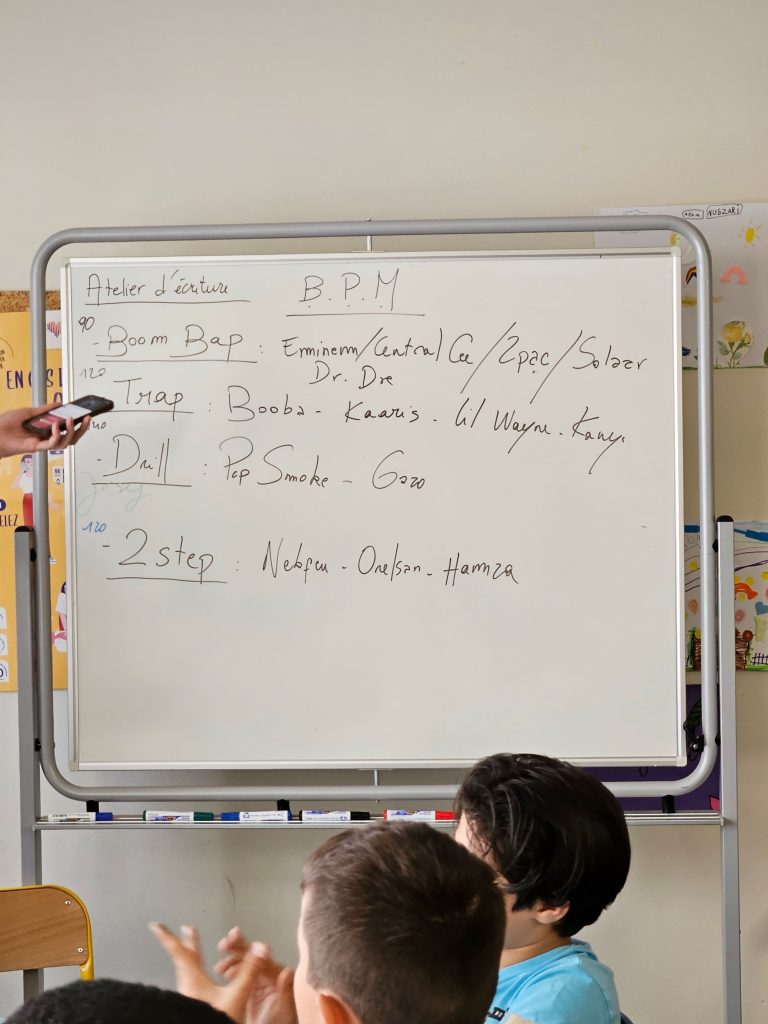 Atelier d'écriture
B.P.M
90
- Boom Bap : Eminem/Central Cee/2pac/Solaar
Dr. Dre
120
- Trap : Booba - Kaaris - Lil Wayne - Kanye
140
- Drill : Pop Smoke - Gazo
jersey
120
- 2 step : Nekfeu - Orelsan - Hamza
NUGZARI